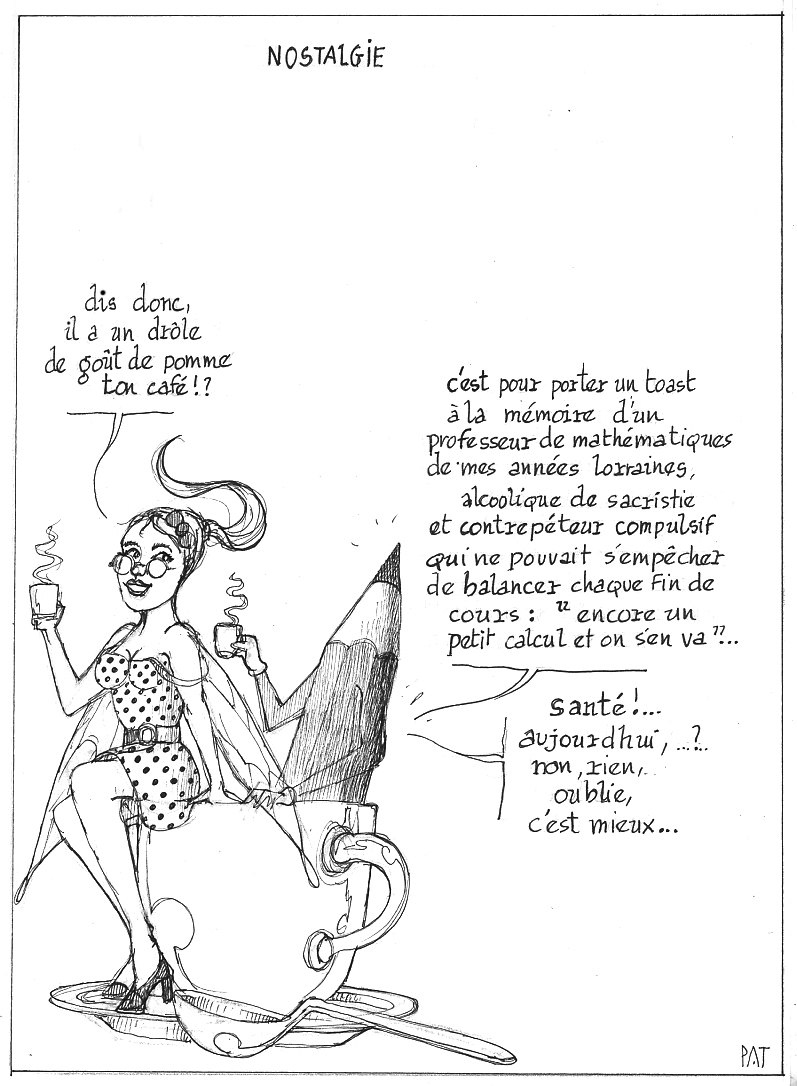 NOSTALGIE
dis donc,
il a un drôle
de goût de pomme
ton café!?
c'est pour porter un toast
à la mémoire d'un
professeur de mathématiques
de mes années lorraines,
alcoolique de sacristie
et contrepéteur compulsif
qui ne pouvait s'empêcher
de balancer chaque fin de
cours : " encore un
petit calcul et on s'en va "...
santé!...
aujourd'hui, ...?..
non, rien,..
oublie,
c'est mieux...
PAT